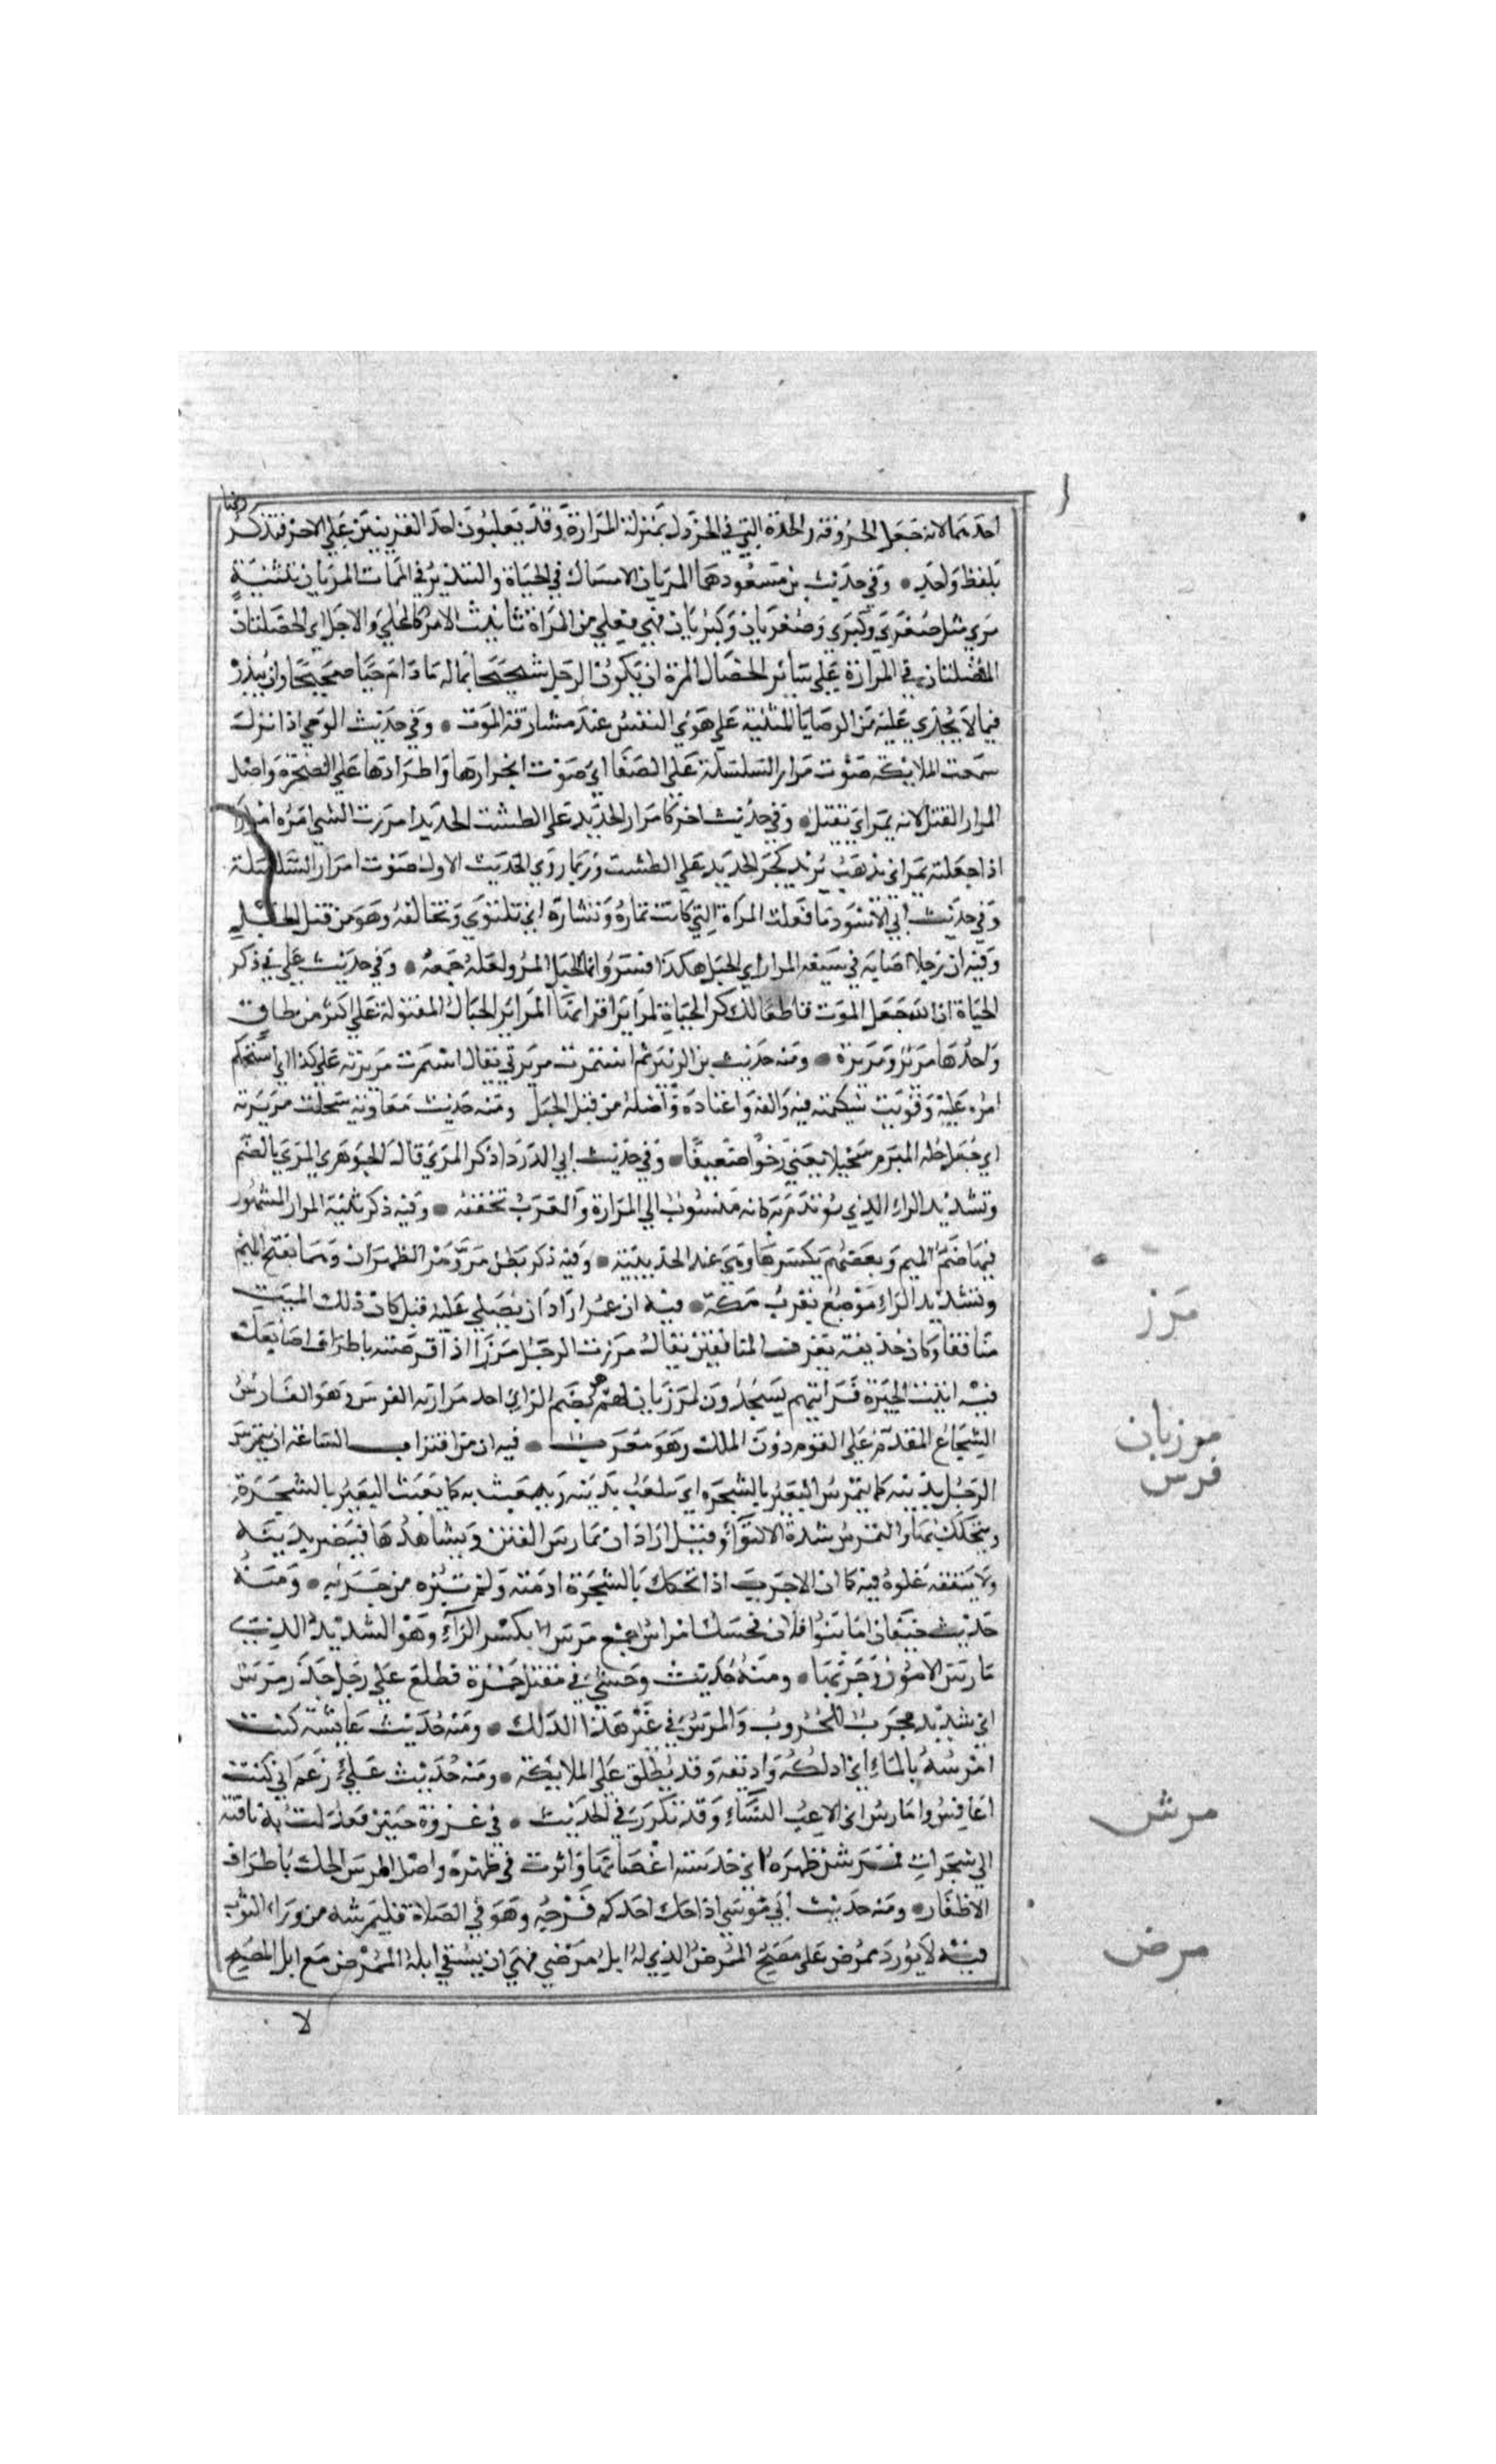 احدهما لانه جعل الحروفة والحدة التي في الخردل بمنزلة المرارة وقد يغلبون احد القرينين على الاخر فيذكر
بلفظ واحد • وفي حديث بن مسعود هما المريان الامساك في الحياة والتبذير في الممات المريان تثنية
مري مثل صغري وكبري وصغريان وكبريان فهي فعلي من المرارة تانيث الامر كالجلي والاجل اي الخصلتان
المفضلتان في المرارة علي سائر الخصال المرة ان يكون الرجل شحيحا بماله ما دام حيا صحيحا وان يبذر
فيما لا يجدي عليه من الوصايا المبنية علي هوي النفس عند مشارفة الموت • وفي حديث الوحي اذا نزل
سمعت الملايكة صوت مرار السلسلة علي الصفا اي صوت انجرارها واطرادها علي الصخرة واصل
المرار الفتل لانه يمر اي يفتل • وفي حديث اخر كامرار الحديد علي الطشت الحديد امررت الشي امره امرارا
اذا جعلته يمر اي يذهب يريد كجر الحديد علي الطشت وربما روي الحديث الاول صوت امرار السلسلة
وفي حديث ابي الاسود ما فعلت المراة التي كانت تماره وتشاره اي تلتوي وتخالفه وهو من فتل الحبل
وفيه ان رجلا اصابه في سيفه المرار اي الحبل هكذا فسر وانما الحبل المر ولعله جمعه • وفي حديث علي في ذكر
الحياة ان الله جعل الموت قاطعا لمراير اقرانها المراير الحبال المفتولة علي اكثر من طاق
واحدها مرير ومريرة • ومنه حديث بن الزبير ثم استمرت مريرتي يقال استمرت مريرته علي كذا اي استحكم
امره عليه وقويت شكيمته فيه والفه واعتاده واصله من فتل الحبل ومنه حديث معاوية سحلت مريرته
اي جعل حبله المبرم سحيلا يعني رخوا ضعيفا • وفي حديث ابي الدردا ذكر المري قال الجوهري المري بالضم
وتشديد الراء الذي يوتدم به كانه منسوب الي المرارة والعرب تخففه • وفيه ذكر ثنية المرار المشهور
فيها ضم الميم وبعضهم يكسرها وهي عند الحديبية • وفيه ذكر بطن مر ومر الظهران وهما بفتح الميم
وتشديد الراء موضع بقرب مكة • فيه ان عمر اراد ان يصلي علي قبل كان ذلك الميت
منافقا وكان حذيفة يعرف المنافقين يقال مرزت الرجل مرزا اذا قرصته باطراف اصابعك
فيه اتيت الحيرة فرايتهم يسجدون لمرزبان لهم هو بضم الزاي احد مرازبة الفرس وهو الفارس
الشجاع المقدم علي القوم دون الملك وهو معرب • فيه ان من اقتراب الساعة ان يتمرس
الرجل بدينه كما يتمرس البعير بالشجرة اي يتلعب بدينه ويعبث به كما يعبث البعير بالشجرة
ويتحكك بها والتمرس شدة الالتواء وقيل اراد ان يمارس الفتن ويشاهدها فيضر بدينه
ولا ينفعه غلوه فيه كما ان الاجرب اذا تحكك بالشجرة ادمته ولم تبره من جربه • ومنه
حديث خيفان اما بنوا فلان فحسك امراس جمع مرس بكسر الراء وهو الشديد الذي
مارس الامور وجربها • ومنه حديث وحشي في مقتل حمزة فطلع علي رجل حذر مرس
اي شديد مجرب للحروب والمرس في غير هذا الدلك • ومنه حديث عايشة كنت
امرسه بالماء اي ادلكه واديفه وقد يطلق علي الملايكة • ومنه حديث علي زعم اني كنت
اعافس وامارس اي الاعب النساء وقد تكرر في الحديث • في غزوة حنين فعدلت به ناقته
الي شجرات فمرشن ظهره اي خدشته اغصانها واثرت في ظهره واصل المرس الحك باطراف
الاظفار • ومنه حديث ابي موسي اذا حك احدكم فرجه وهو في الصلاة فليمرشه من وراء الثوب
فيه لا يورد ممرض علي مصح الممرض الذي له ابل مرضي فنهي ان يسقي ابله الممرض مع ابل المصح
مرز
مرزبان
مرس
مرش
مرض
لا